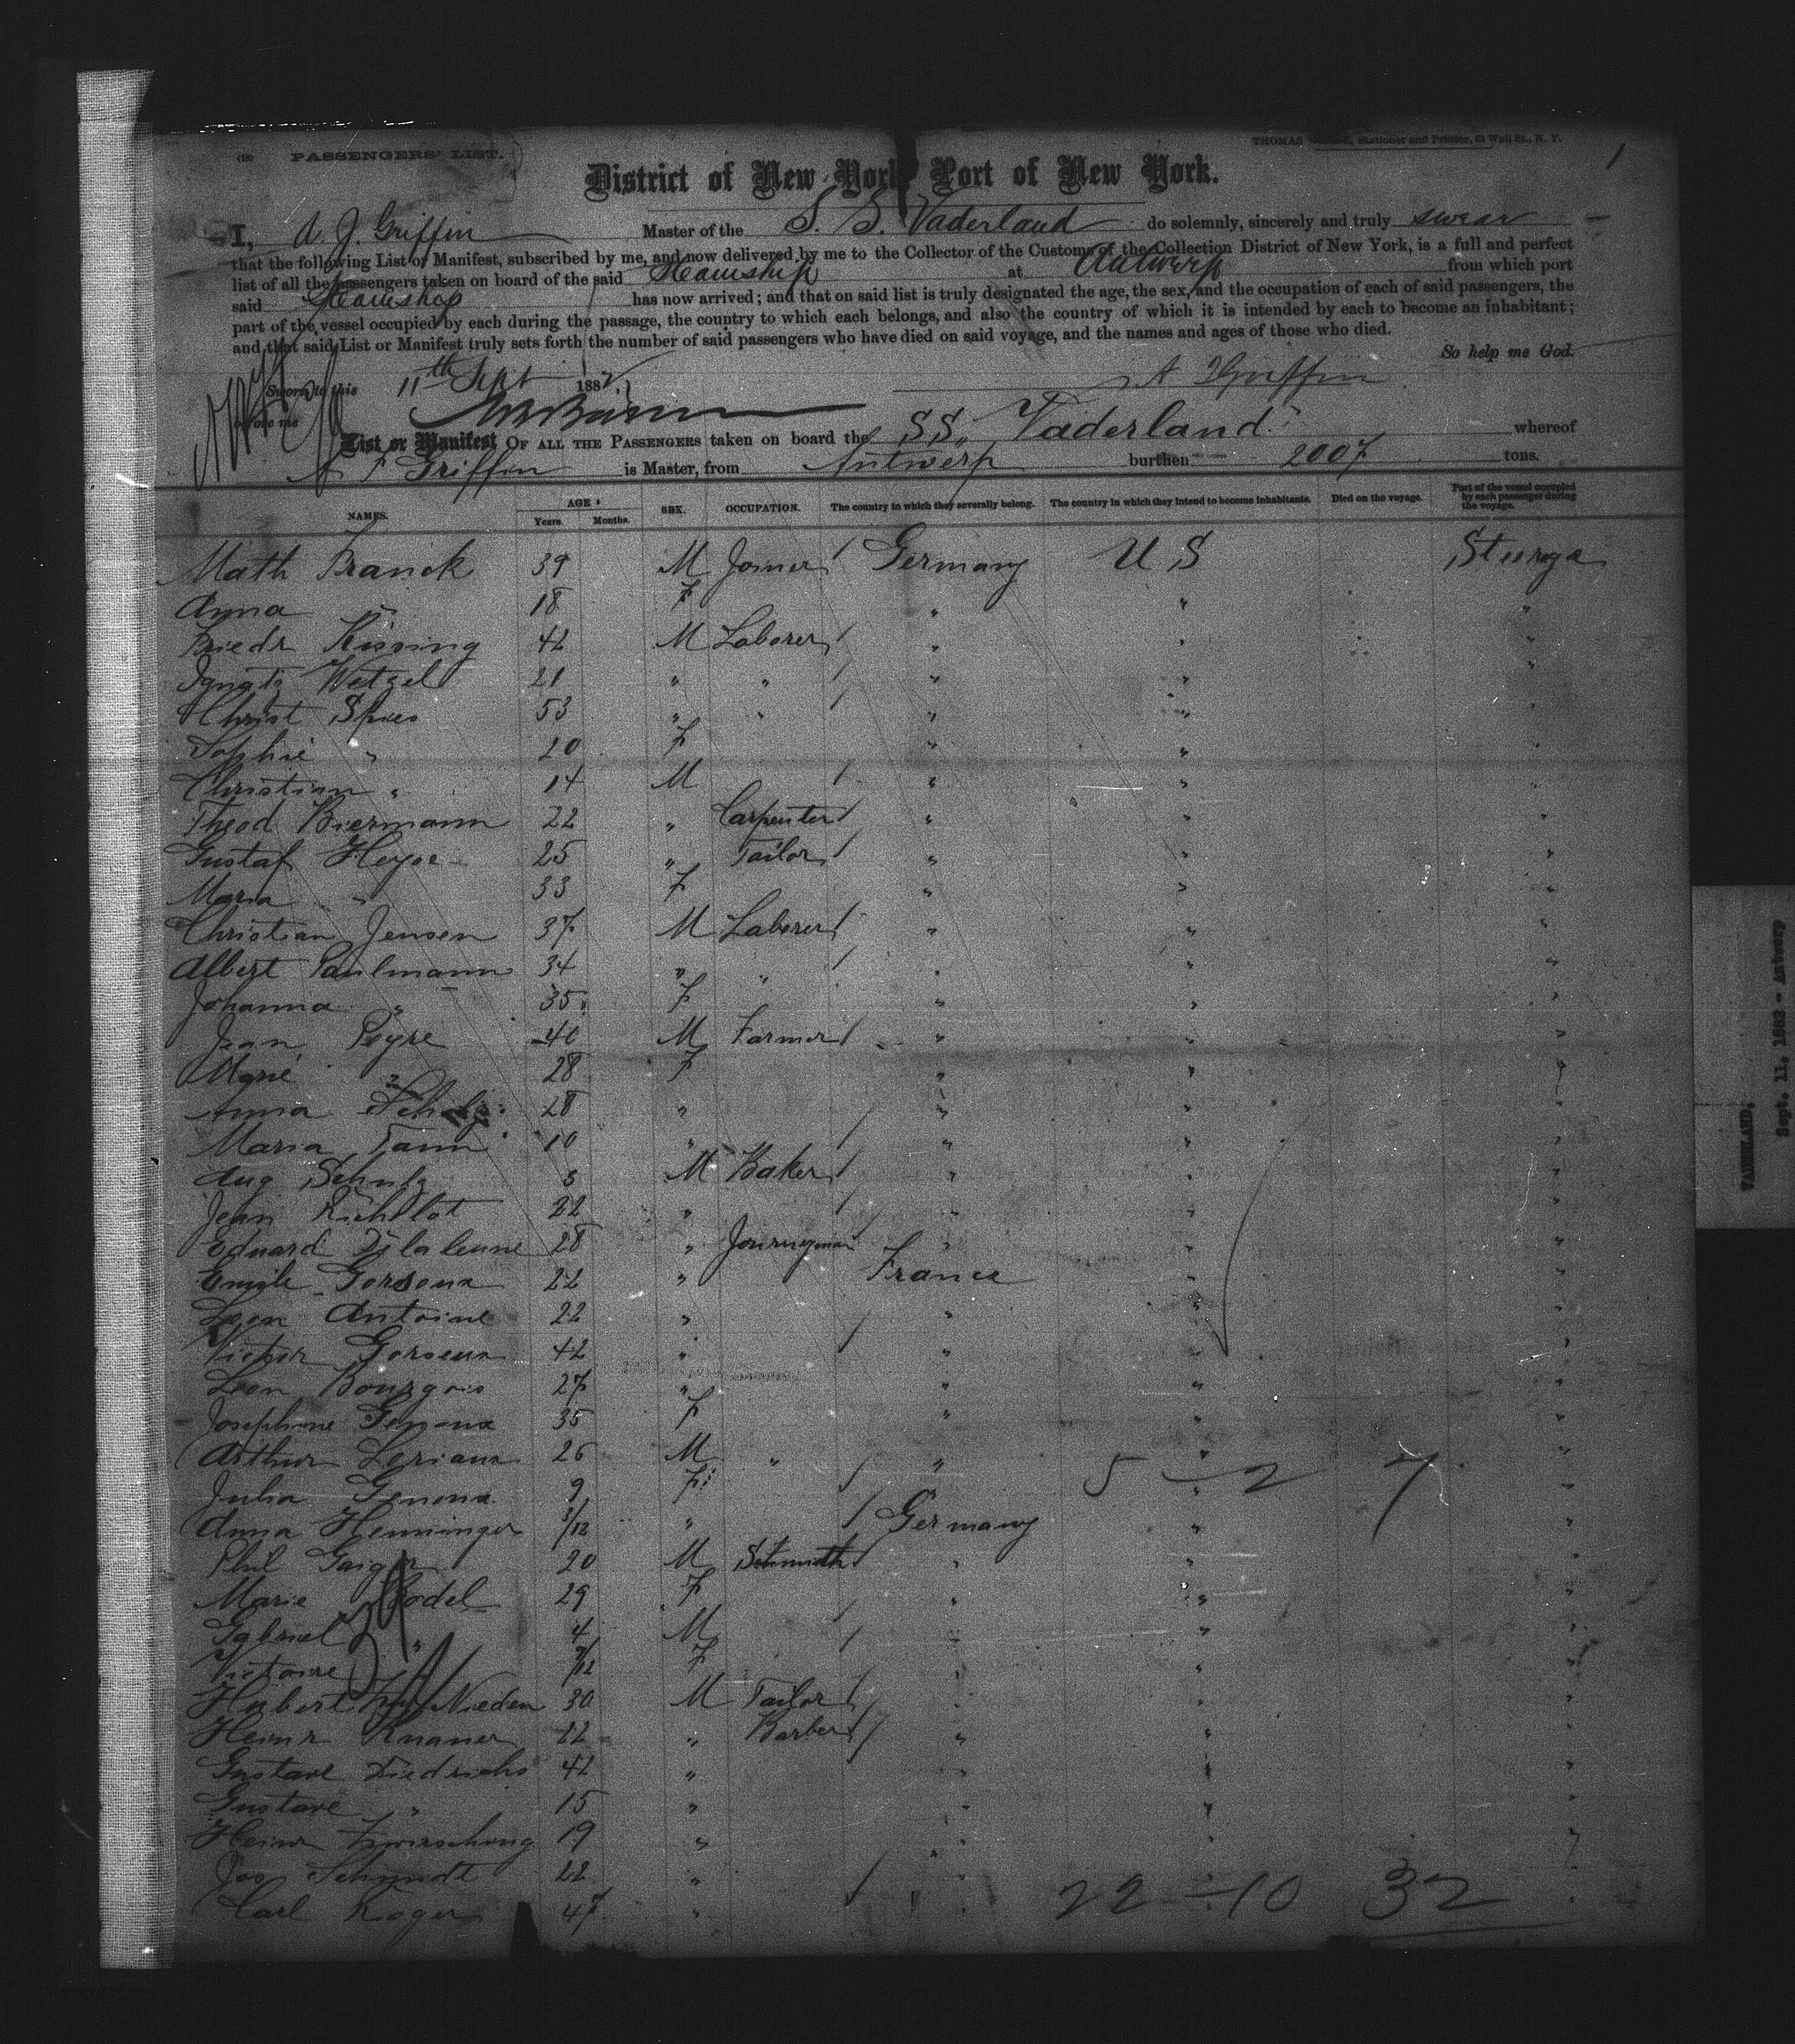 (18) PASSENGERS' LIST.
THOMAS Stationer and Printer, 62 Wall St., N. Y.
1
District of New York Port of New York.
I, A. J. Griffin Master of the S. S. Vaderland do solemnly, sincerely and truly swear
that the following List or Manifest, subscribed by me, and now delivered by me to the Collector of the Customs of the Collection District of New York, is a full and perfect
list of all the passengers taken on board of the said Steamship at Antwerp from which port
said Steamship has now arrived; and that on said list is truly designated the age, the sex, and the occupation of each of said passengers, the
part of the vessel occupied by each during the passage, the country to which each belongs, and also the country of which it is intended by each to become an inhabitant;
and that said List or Manifest truly sets forth the number of said passengers who have died on said voyage, and the names and ages of those who died.
So help me God.
Sworn to this 11th Sept 1882, A Griffin
before me
List or Manifest OF ALL THE PASSENGERS taken on board the SS. Vaderland whereof
A F Griffin is Master, from Antwerp burthen 2007 tons.
NAMES. AGE Years Months. SEX. OCCUPATION. The country in which they severally belong. The country in which they intend to become inhabitants. Died on the voyage. Part of the vessel occupied by each passenger during the voyage.
Math Franck 39 M Joiner Germany U S
Anna " 18 F " " "
Friedr Kissing 42 M Laborer " " "
Ignatz Wetzel 21 " " " " "
Christ Spies 53 " " " " "
Sophie " 20 F " " "
Christian " 14 M " " "
Theod Biermann 22 " Carpenter " " "
Gustaf Heyse 25 " Tailor " " "
Maria " 33 F " " "
Christian Jensen 37 M Laborer " " "
Albert Paulmann 34 " " " " "
Johanna " 35 F " " "
Jean Peyre 40 M Farmer " " "
Marie " 28 F " " "
Anna 28 " " " "
Maria Tann 10 " " " "
Aug Schulz M Baker " " "
Jean Richllot 22 " " " "
Eduard 28 " Journeyman " " "
Emile 22 " France " "
Leon Antoine 22 " " " "
Victor Gorseux 42 " " " "
Leon Bourgois 27 " " " "
Josephine 35 F " " "
Arthur 26 M " " " "
Julia 9 F " " "
5 2 7
Anna Henninger 3/12 " Germany " "
Phil Geiger 20 M Schmidth " " "
Marie 29 F " " "
Gabriel " 4 M " " "
Victoire " /12 F " " "
Hubert Nieden 30 M Tailor " " "
Heinr Knauer 22 " Barber " " "
Gustave Diedrichs 42 " " " "
Gustave " 15 " " " "
Heinr 19 " " " "
Jos Schmidt 22 " " " "
Carl 47 " " "
22 10 32
VADERLAND,
Sept. 11. 1882 - Antwerp